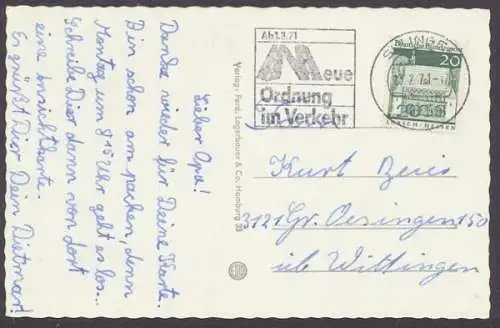 Lieber Opa!
Danke wieder für Deine Karte.
Bin schon am packen, denn
Montag um 8 15 Uhr geht es los...
Schreibe Dir dann von dort
eine Ansichtskarte.
Es grüßt Dir Dein Dietmar!
Verlag: Ferd. Lagerbauer & Co. Hamburg 33
Ab 1.3.71
Neue
Ordnung
im Verkehr
SOLINGEN
Deutsche Bundespost
20
LORSCH/HESSEN
Kurt Beis
3121 Gr. Oesingen 150
üb Wittingen